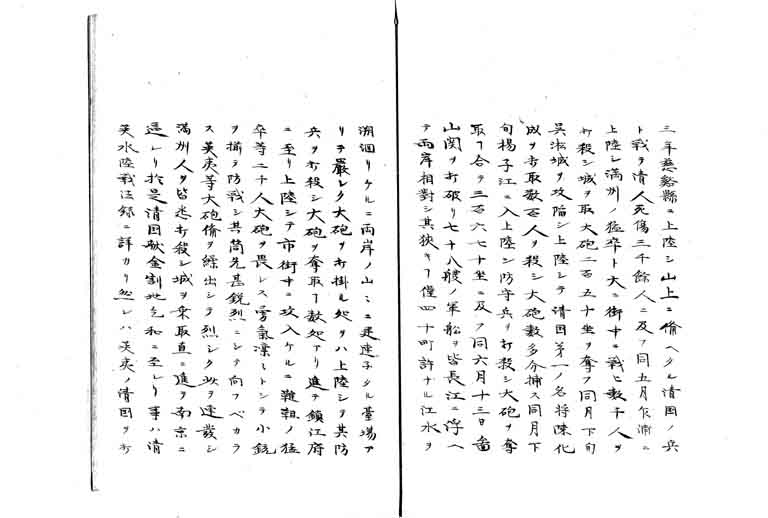 三年慈谿縣ニ上陸シ山上ニ備ヘタル清国ノ兵
ト戦ヲ清人死傷三千餘人ニ及フ同五月乍浦ニ
上陸シ満州ノ猛卒ト大ニ街中ニ戦ヒ数千人ヲ
打殺シ城ヲ取大砲二百五十坐ヲ奪フ同月下旬
呉淞城ヲ攻陥シ上陸シテ清国第一ノ名将陳化
成ヲ打取数百人ヲ殺シ大砲数多分捕ス同月下
旬揚子江ニ入上陸シ防守兵ヲ打殺シ大砲ヲ奪
取丁合テ三百六七十坐ニ及フ同六月十三日圌
山関ヲ打破リ七十八艘ノ軍船ヲ皆長江ニ浮ヘ
テ両岸相對シ其狭キヿ僅四十町許ナル江水ヲ
溯洄リケルニ両岸ノ山ミニ建連子タル臺場ア
リテ嚴シク大砲ヲ打掛ル処ヲハ上陸シテ其防
兵ヲ打殺シ大砲ヲ奪取丁数処アリ進テ鎮江府
ニ至リ上陸シテ市街中ニ攻入ケルニ韃靼ノ猛
卒等二千人大砲ヲ畏レス勇氣凜ミトシテ小銃
ヲ揃テ防戦シ其筒先甚鋭烈ニシテ向フベカラ
ス英夷等大砲備ヲ繰出シテ烈シク此ヲ連發シ
満州人ヲ皆悉打殺シ城ヲ乗取直ニ進ヲ南京ニ
逼レリ於是清国献金割地乞和ニ至レリ事ハ清
英水陸戦法録ニ詳カリ然レハ英夷ノ清国ヲ打